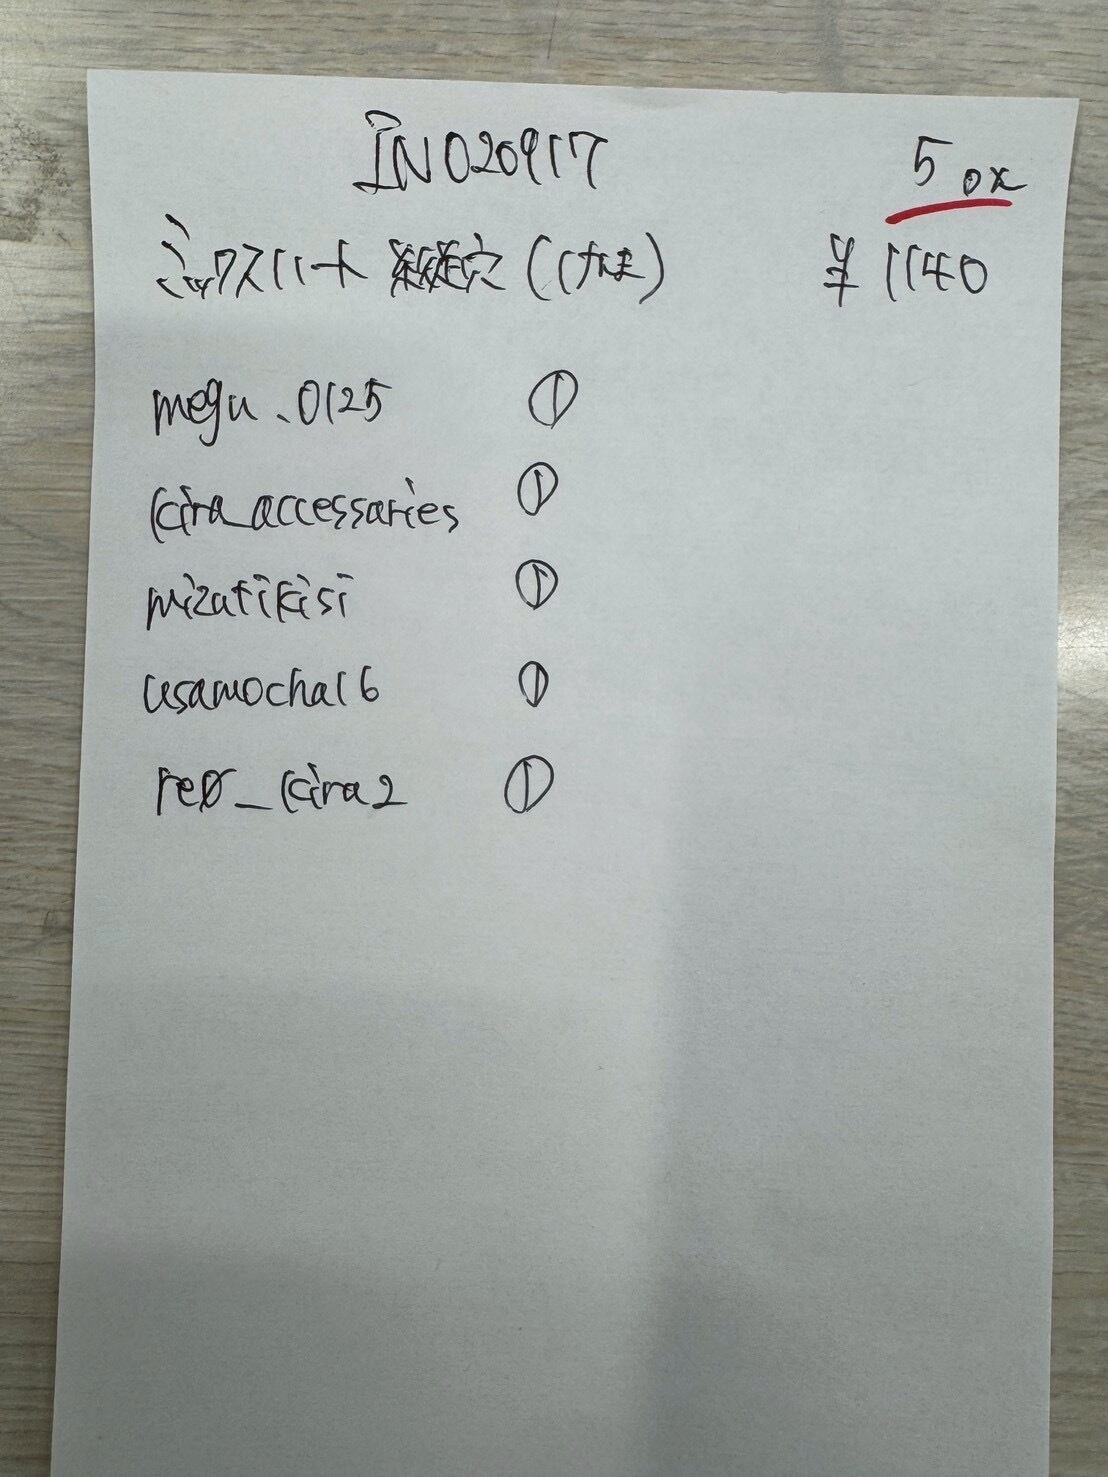 IN020917 5 ox
ミックスハート 縦穴 (けなま) ¥1140
megu.0125 ①
kira_accessaries ①
mizutikisi ①
usamocha16 ①
re0_kira2 ①